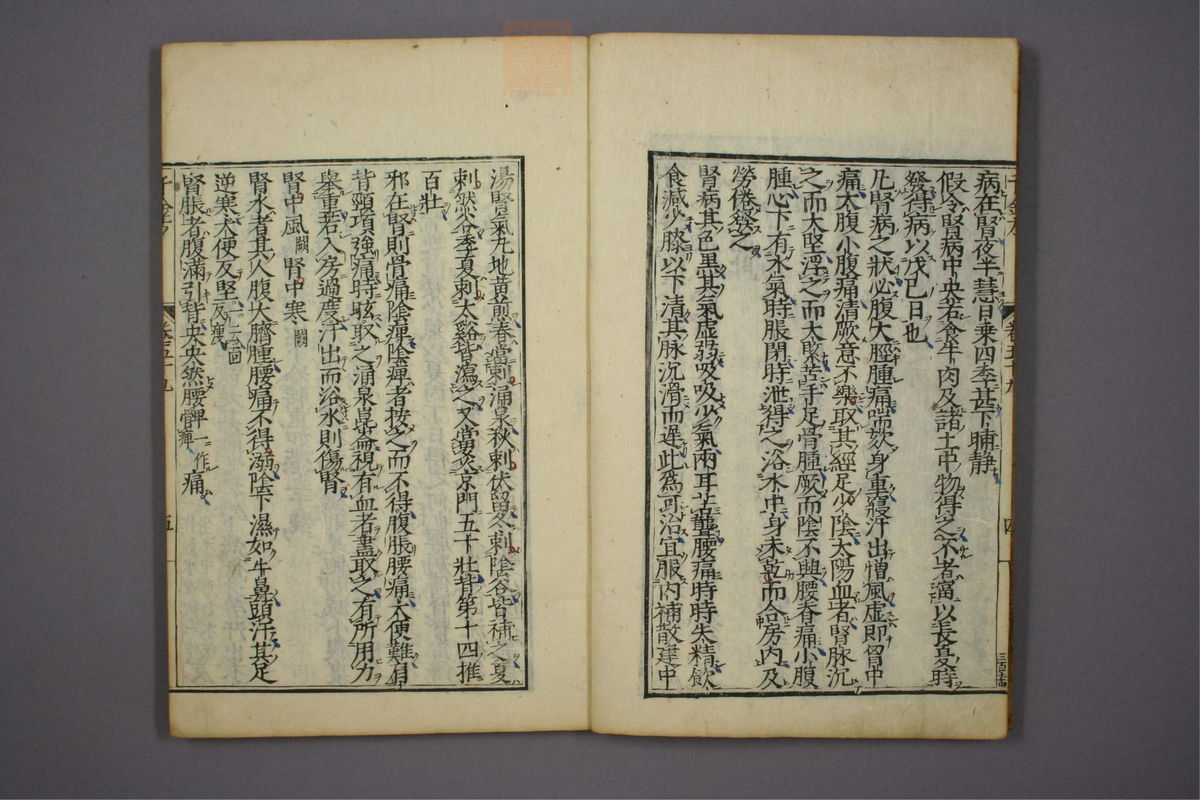 病在腎夜半慧日乗四季甚下晡静
假令腎病中央若食牛肉及諸土中物得之不者當以長夏時
發得病以戊巳日也
凡腎病之狀必腹大脛腫痛喘欬身重寢汗出憎風虛即胷中
痛大腹小腹痛清厥意不樂取其經足少陰太陽血者腎脉沉
之而大堅浮之而大緊苦手足骨腫厥而陰不興腰脊痛小腹
腫心下有水氣時脹閉時泄得之浴水中身未乾而合房內及
勞倦發之
腎病其色黑其氣虛弱吸吸少氣兩耳苦聾腰痛時時失精飲
食減少膝以下清其脉沉滑而遲此爲可治宜服內補散建中
湯腎氣丸地黄煎春當刺涌泉秋刺伏留冬刺陰谷皆補之夏
刺然谷季夏刺太谿皆瀉之又當灸京門五十壯背第十四椎
百壯
邪在腎則骨痛陰痺陰痺者按之而不得腹脹腰痛大便難肩
背頸項強痛時眩取之涌泉崑崙視有血者盡取之有所用力
舉重若入房過度汗出而浴水則傷腎
腎中風闕腎中寒闕
腎水者其人腹大臍腫腰痛不得溺陰下濕如牛鼻頭汗其足
逆寒大便反堅一云面反瘦
腎脹者腹滿引背央央然腰髀一作痺痛
卷五十九
四
卷五十九
五